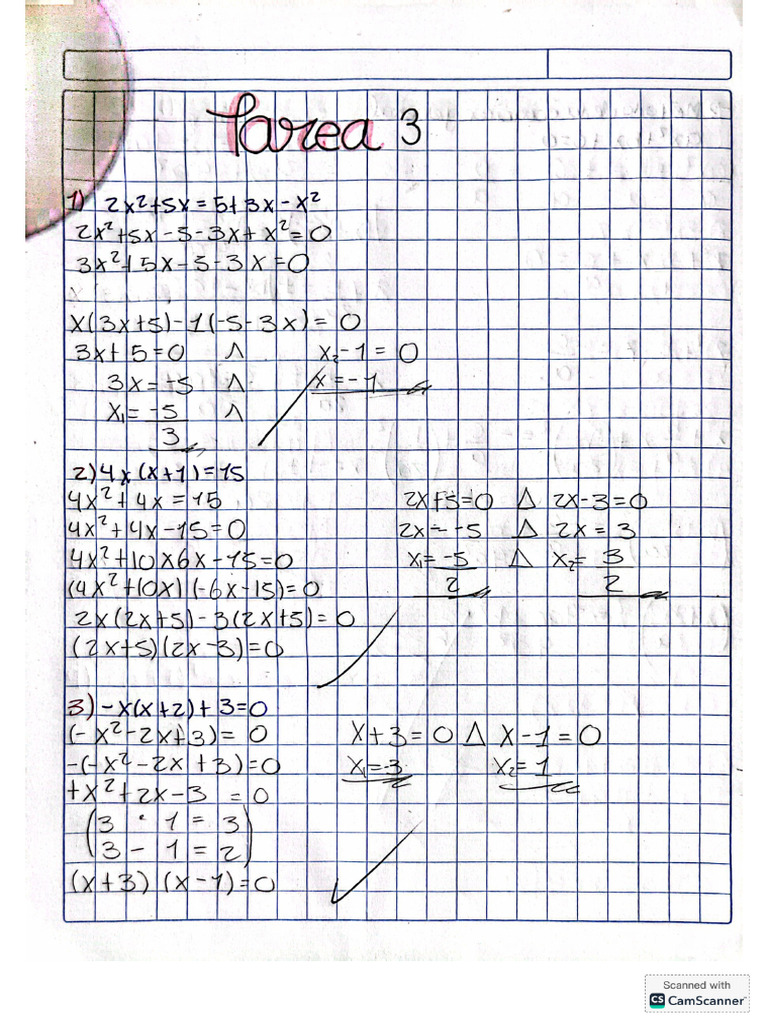 Tarea 3
1) 2x²+5x = 5+3x-x²
2x²+5x-5-3x+x²=0
3x²+5x-5-3x=0
x(3x+5)-1(-5-3x)=0
3x+5=0 ∧ x₂-1=0
3x=-5 ∧ x=-1
x₁=-5/3 ∧
2) 4x(x+1)=15
4x²+4x=15
4x²+4x-15=0
4x²+10x6x-15=0
(4x²+10x)(-6x-15)=0
2x(2x+5)-3(2x+5)=0
(2x+5)(2x-3)=0
2x+5=0 ∆ 2x-3=0
2x=-5 ∆ 2x=3
x₁=-5/2 ∆ x₂=3/2
3) -x(x+2)+3=0
(-x²-2x+3)=0
-(-x²-2x+3)=0
+x²+2x-3=0
(3 · 1 = 3
3 - 1 = 2)
(x+3)(x-1)=0
x+3=0 ∆ x-1=0
x₁=-3 x₂=1
Scanned with
CS CamScanner